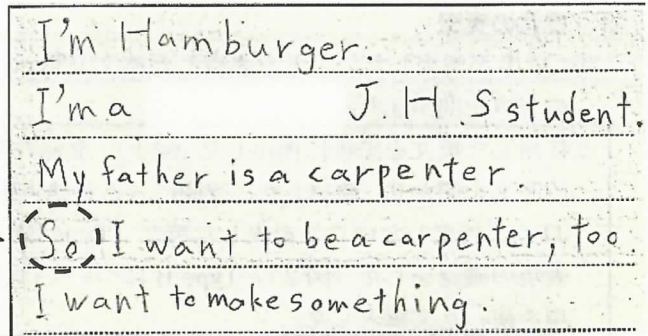 I'm Hamburger.
I'm a J. H. S student.
My father is a carpenter.
So I want to be a carpenter, too
I want to make something.